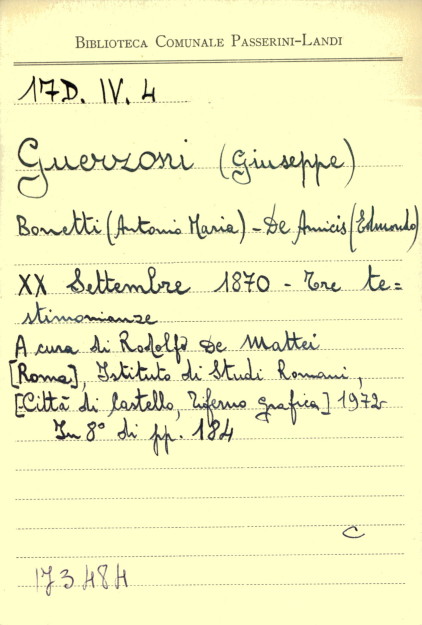 BIBLIOTECA COMUNALE PASSERINI-LANDI
17D. IV. 4
Guerzoni (Giuseppe)
Bonetti (Antonio Maria) - De Amicis (Edmondo)
XX Settembre 1870 - Tre te=
stimonianze
A cura di Rodolfo De Mattei
[Roma], Istituto di Studi Romani,
[Città di Castello, Tiferno Grafica] 1972
In 8° di pp. 184
C
173484